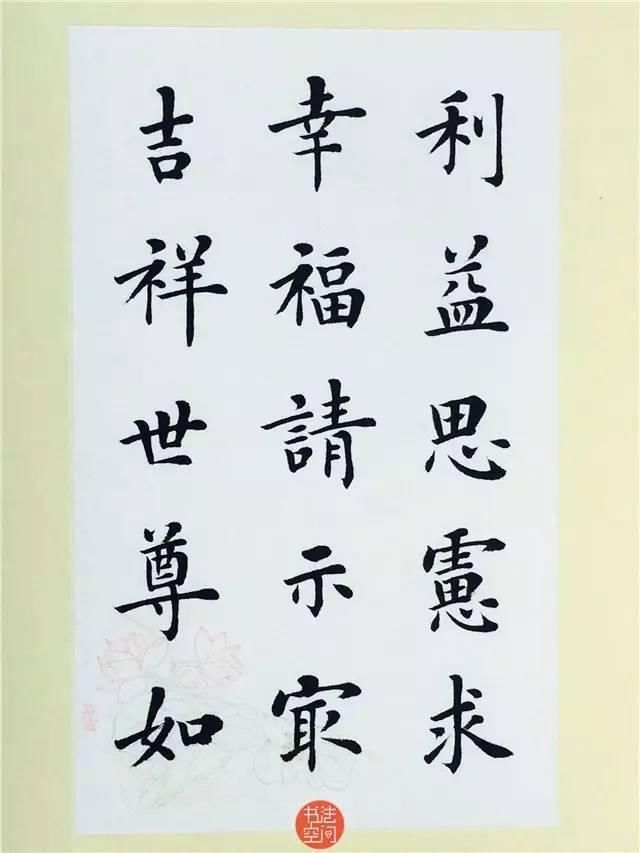 利益思慮求
幸福請示冣
吉祥世尊如
书法空间